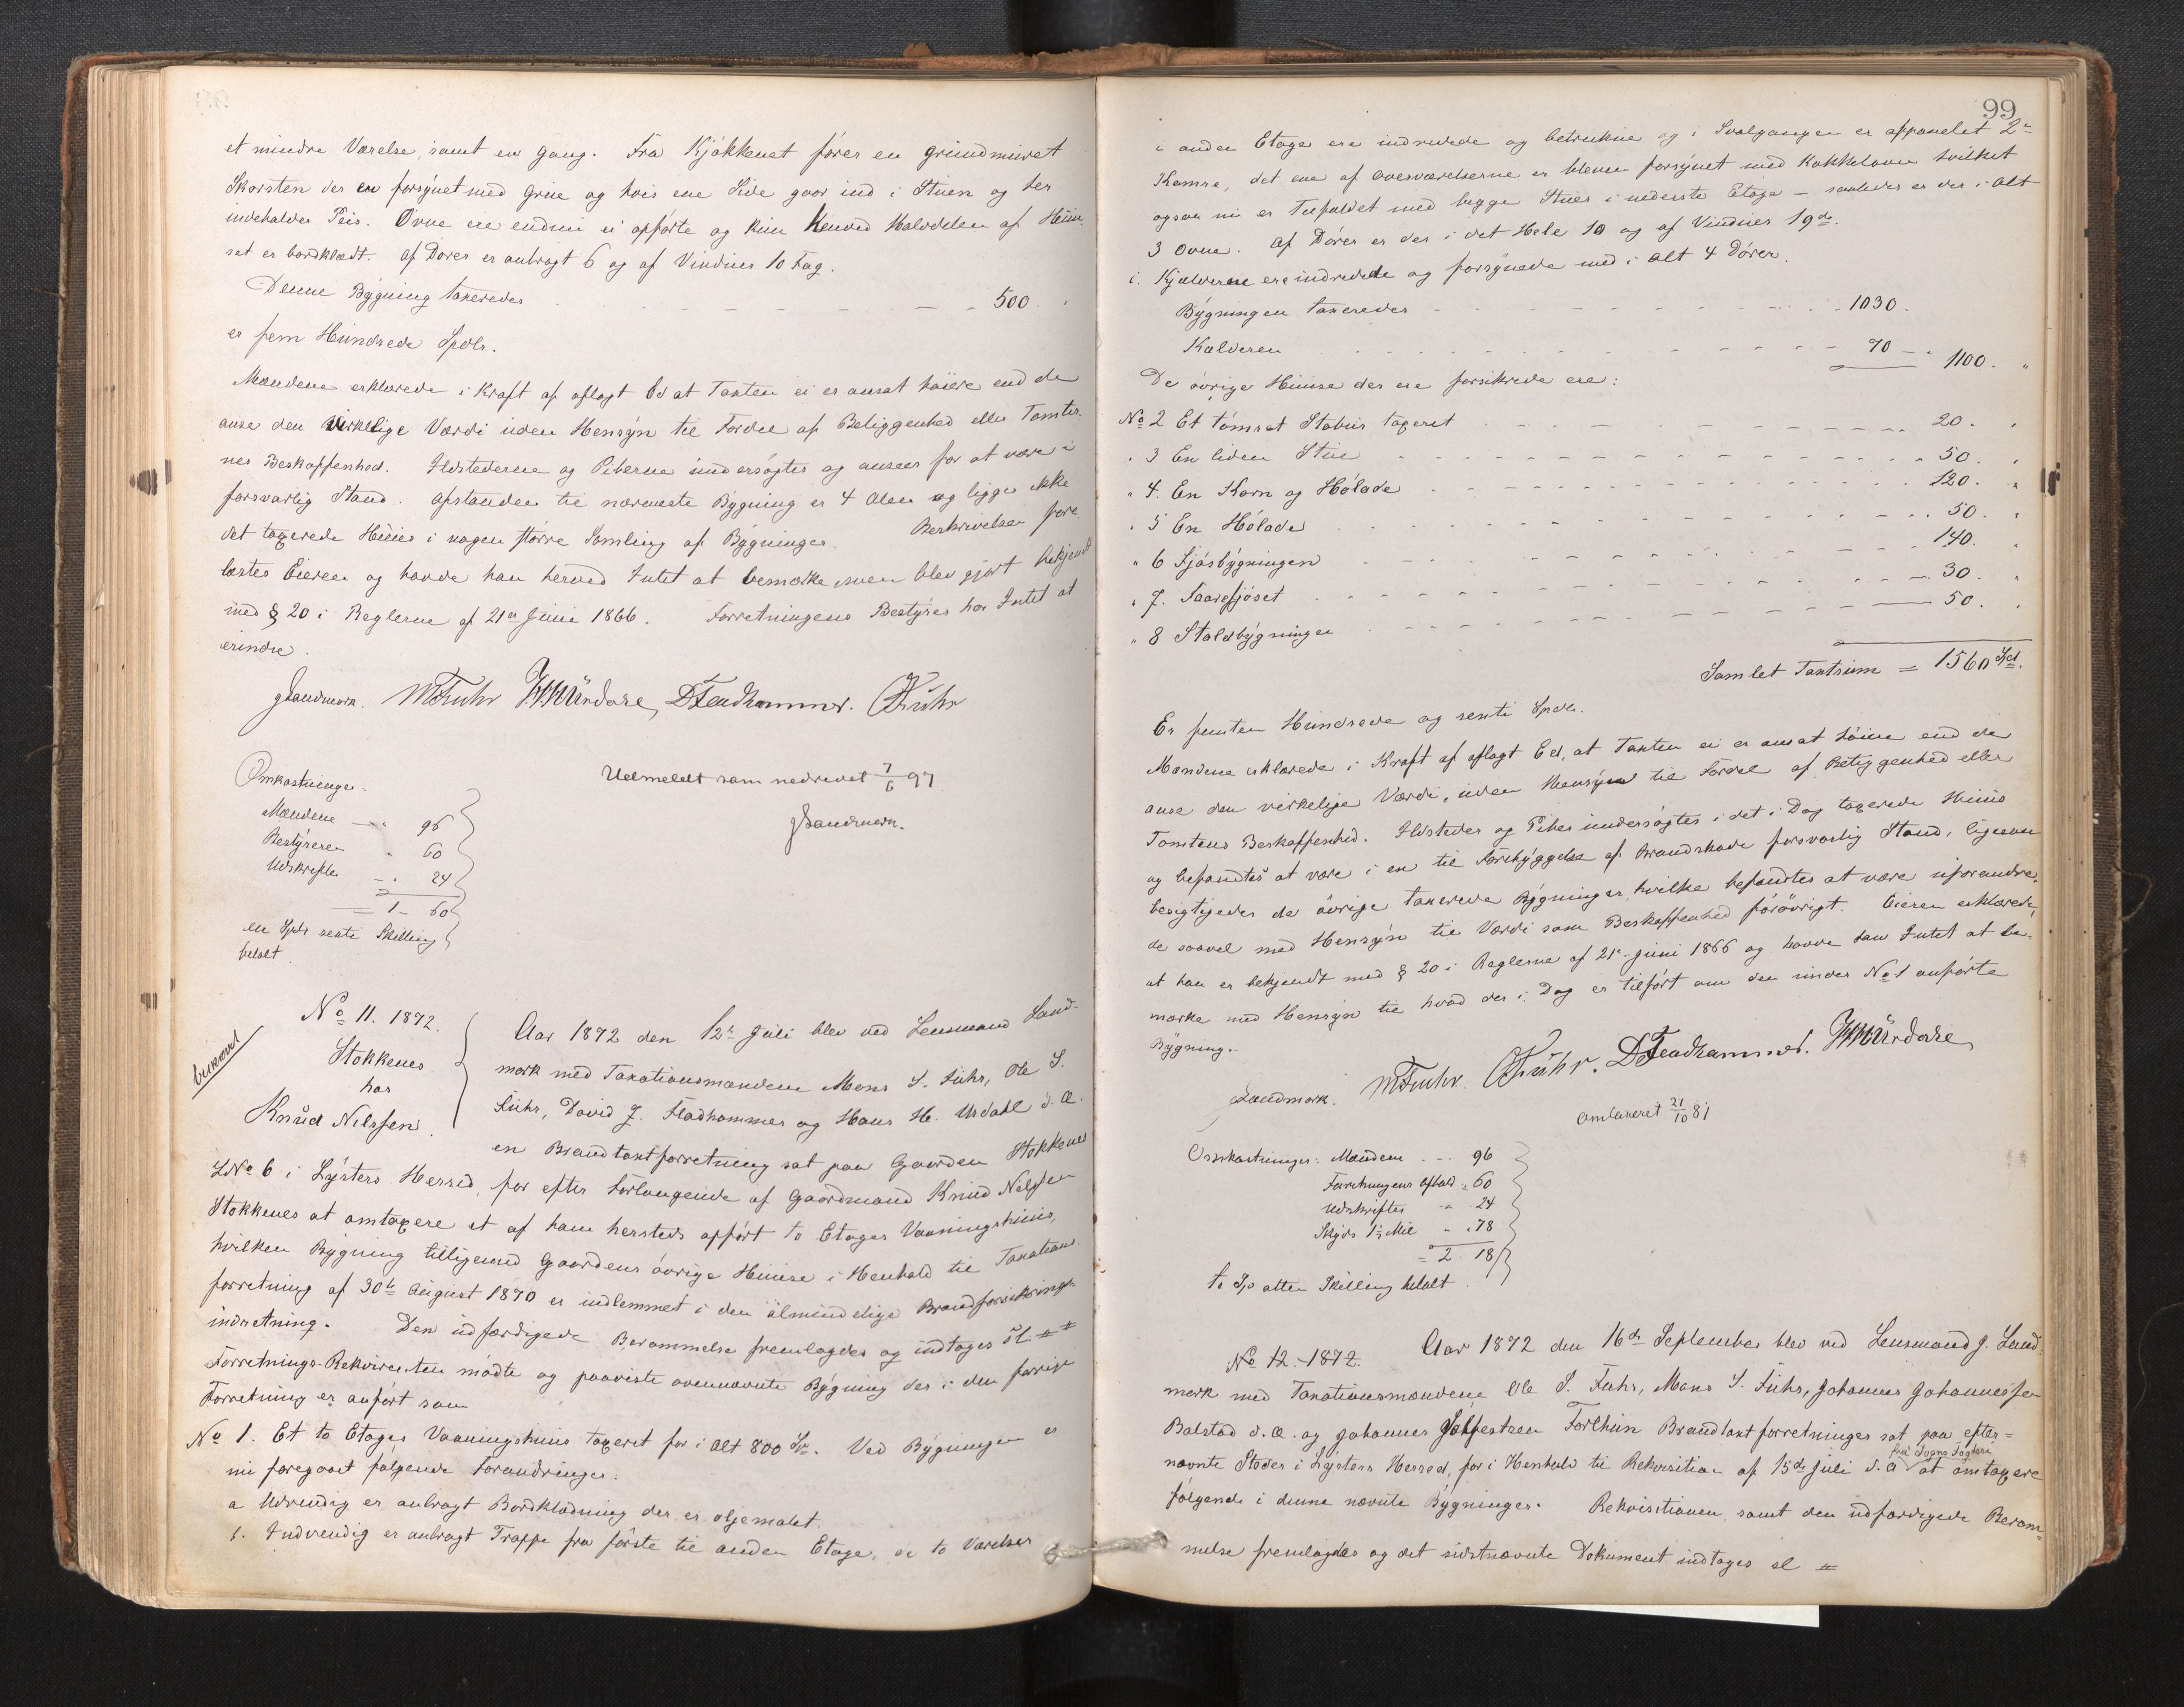 et mindre Værelse, samt en Gang. Fra Kjøkkenet fører en grundmuret
Skorsten der er forsynet med Grue og hvis ene Side gaar ind i Stuen og der
indeholder Peis. Ovne ere endnu ei opførte og kun henved Halvdelen af Huu-
set er bordklædt. Af Dører er anbragt 6 og af Vinduer 10 Fag.
Denne Bygning taxeredes - - - - - 500 "
er fem Hundrede Spdlr.
Mændene erklærede i Kraft af aflagt Ed at Taxten ei er ansat høiere end de
anse den virkelige Værdi uden Hensyn til Fordel af Beliggenhed eller Tomter-
nes Beskaffenhed. Ildstederne og Piberne undersøgtes og ansees for at være i
forsvarlig Stand. Afstanden til nærmeste Bygning er 4 Alen og ligger ikke
det taxerede Huus i nogen større Samling af Bygninger. Beskrivelsen fore-
læstes Eieren og havde han herved Intet at bemærke, men blev gjort bekjendt
med § 20 i Reglerne af 21de Juni 1866. Forretningens Bestyrer har Intet at
erindre.
J Landmark. M S Fuhr H H Urdahl, D J Fladhammer. O S Fuhr
Omkostninger.
Mændene - " 96
Bestyreren " 60
Udskriften - " 24
= 1 - 60
en Spdlr sexti Skilling
betalt.
Udmeldt som nedrevet 7/6 97
J Landmark.
beskrevet
No 11. 1872.
Stokkenes
hos
Knud Nilssen.
Aar 1872 den 12te Juli blev ved Lensmand Land-
mark med Taxationsmændene Mons S. Fuhr, Ole S.
Fuhr, David J. Fladhammer og Hans H. Urdahl d. Æ.
en Brandtaxtforretning sat paa Gaarden Stokkenes
LNo 6 i Lysters Herred, for efter Forlangende af Gaardmand Knud Nilssen
Stokkenes at omtaxere et af ham hersteds opført to Etages Vaaningshuus,
hvilken Bygning tilligemed Gaardens øvrige Huuse i Henhold til Taxations-
forretning af 30te August 1870 er indlemmet i den almindelige Brandforsikrings-
indretning. Den udfærdigede Berammelse fremlagdes og indtages sl. #
Forretnings-Rekvirenten mødte og paaviste ovennævnte Bygning der i den forrige
Forretning er anført som
No 1. Et to Etages Vaaningshuus taxeret for i Alt 800 Spd. Ved Bygningen er
nu foregaaet følgende Forandringer:
a Udvendig er anbragt Bordklædning der er oljemalet.
b. Indvendig er anbragt Trappe fra første til anden Etage, de to Værelser
99
i anden Etage ere indredede og betrukne og i Svalgangen er afpanelet 2de
Kamre, det ene af Overværelserne er bleven forsynet med Kakkelovn hvilket
ogsaa nu er Tilfældet med begge Stuer i nederste Etage - saaledes er der i Alt
3 Ovne. Af Dører er der i det Hele 10 og af Vinduer 19 do.
c. Kjælderne ere indredede og forsynede med i Alt 4 Dører.
Bygningen taxeredes - - - - - 1030.
Kælderen - - - - - 70 - " 1100. "
De øvrige Huuse der ere forsikrede ere:
No 2 Et tømret Stabur taxeret - - - - - 20. "
" 3 En liden Stue - - - - - 50. "
" 4. En Korn og Hølade - - - - - 120. "
" 5 En Hølade - - - - - 50. "
" 6 Fjøsbygningen - - - - - 140. "
" 7. Faarefjøset - - - - - 30. "
" 8 Staldbygningen - - - - - 50. "
Samlet Taxtsum = 1560 Spd.
Er femten Hundrede og sexti Spdlr.
Mændene erklærede i Kraft af aflagt Ed, at Taxten ei er ansat høiere end de
anse den virkelige Værdi, uden Hensyn til Fordel af Beliggenhed eller
Tomtens Beskaffenhed. Ildsteder og Piber undersøgtes i det i Dag taxerede Huus
og befandtes at være i en til Forebyggelse af Brandskade forsvarlig Stand, ligesom
besigtigedes de øvrige taxerede Bygninger, hvilke befandtes at være uforandre-
de saavel med Hensyn til Værdi som Beskaffenhed forøvrigt. Eieren erklærede
at han er bekjendt med § 20 i Reglerne af 21de Juni 1866 og havde han Intet at be-
mærke med Hensyn til hvad der i Dag er tilført om den under No 1 anførte
Bygning.
J Landmark. M S Fuhr. O S Fuhr. D J Fladhammer. H H Urdahl
Omtaxeret 21/10 81
Omkostninger: Mændene - " 96
Forretningens Afhold " 60
Udskriften " 24
Skyds 1 1/2 Mil " 78
= 2 18
to Spd atten Skilling betalt.
No 12. 1872.
Aar 1872 den 16de September blev ved Lensmand J. Land-
mark med Taxationsmændene Ole S. Fuhr, Mons S. Fuhr, Johannes Johannessen
Bolstad d. Æ. og Johannes Sjølfestsen Forthun Brandtaxtforretninger sat paa efter-
nævnte Steder i Lysters Herred, for i Henhold til Rekvisition af 15de Juli d. A fra Sogns Fogderi at omtaxere
følgende i denne nævnte Bygninger. Rekvisitionen samt den udfærdigede Beram-
melse fremlagdes og det sidstnævnte Dokument indtages sl #